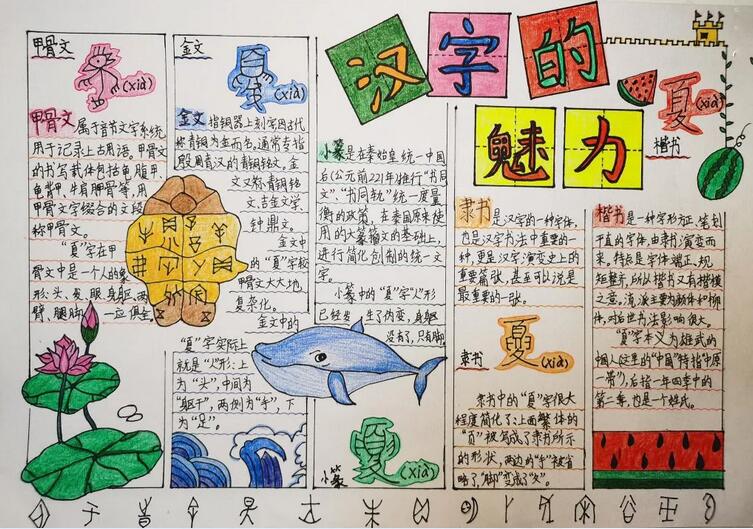 汉字的
魅力
甲骨文
(xià)
甲骨文属于音节文字系统,
用于记录上古用语。甲骨文
的书写载体包括龟腹甲、
龟背甲、牛肩胛骨等,用
甲骨文字缀合的文段
称甲骨文。
"夏"字在甲
骨文中是一个人的象
形:头、发、眼、身躯、两
臂、腿脚 一应俱全
金文
(xià)
金文指铜器上刻字因古代
称青铜为金而名,通常专指
殷周秦汉的青铜铭文,金
文又称青铜铭
文、吉金文字、
钟鼎文。
金文中
的"夏"字较
甲骨文大大地
复杂化。
金文中的
"夏"字实际上
就是"人"形:上
为"头",中间为
"躯干",两侧为"手",下
为"足"。
小篆是在秦始皇统一中国
后(公元前221年)推行"书同
文","书同轨"统一度量
衡的政策,在秦国原来使
用的大篆籀文的基础上,
进行简化创制的统一文
字。
小篆中的"夏"字"人"形
已经发生了伪变,身躯
没有了,只有脚
小篆
夏(xià)
隶书是汉字的一种字体,
也是汉字书法中重要的一
种,更是汉字演变史上的
重要篇张,甚至可以说是
最重要的一张。
隶书
夏(xià)
隶书中的"夏"字很大
程度简化了:上面繁体的
"百"被勾成了隶书所示
的形状,两边的"手"被省
略了,"脚"变成了"夂"。
夏(xià)
楷书
楷书是一种字形方正、笔划
平直的字体,由隶书演变而
来,特点是字体端正、规
矩整齐,所以楷书又有楷模
之意。流派主要为颜体和柳
体,对后世书法影响很大。
"夏"字本义为雄武的
中国人(这里的"中国"特指"中原
一带"),后指一年四季中的
第二季,也是个姓氏。